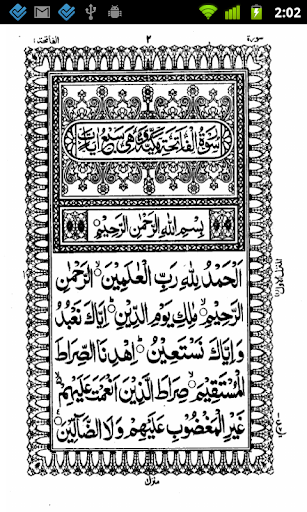 2:02
الفاتحة ١ ٢ سورة
سُوْرَةُ الْفَاتِحَةِ مَكِّيَّةٌ وَهِيَ سَبْعُ اٰيَاتٍ
بِسْمِ اللهِ الرَّحْمٰنِ الرَّحِيْمِ
اَلْحَمْدُ لِلّٰهِ رَبِّ الْعٰلَمِيْنَ ۙ الرَّحْمٰنِ
الرَّحِيْمِ ۙ مٰلِكِ يَوْمِ الدِّيْنِ ؕ اِيَّاكَ نَعْبُدُ
وَ اِيَّاكَ نَسْتَعِيْنُ ؕ اِهْدِنَا الصِّرَاطَ
الْمُسْتَقِيْمَ ۙ صِرَاطَ الَّذِيْنَ اَنْعَمْتَ عَلَيْهِمْ ۙ
غَيْرِ الْمَغْضُوْبِ عَلَيْهِمْ وَلَا الضَّآلِّيْنَ
منزل